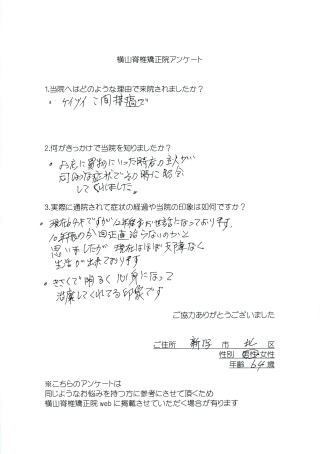 横山脊椎矯正院アンケート
1.当院へはどのような理由で来院されましたか？
・ケイツイ
2.何がきっかけで当院を知りましたか？
・お店に買物にいった時店の主人が
同じ様な症状でその時に紹介
してくれました。
3.実際に通院されて症状の経過や当院の印象は如何ですか？
・現在
思いましたが 現在はほぼ支障なく
生活が出来ております
・きさくで明るく 心身になって
治療してくれてる印象です
ご協力ありがとうございました
ご住所 新潟 市 北 区
性別 男性・女性
年齢 64 歳
※こちらのアンケートは
同じようなお悩みを持つ方に参考にさせて頂くため
横山脊椎矯正院 web に掲載させていただく場合が有ります